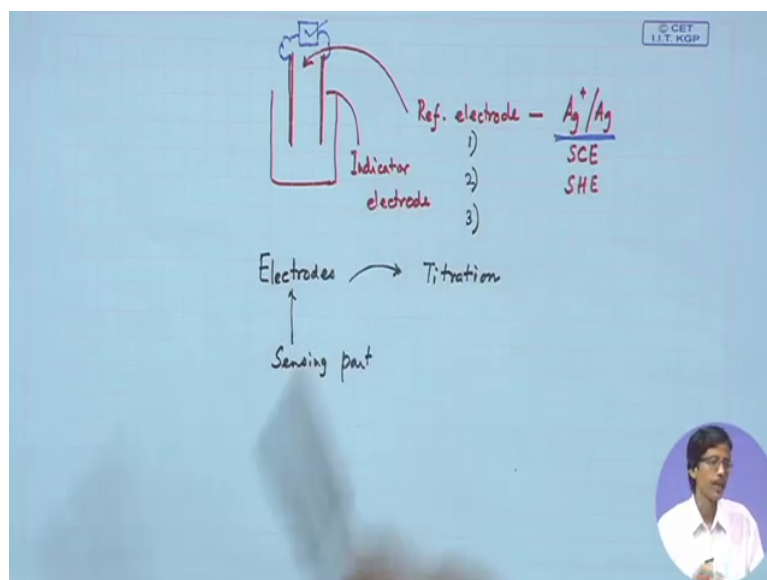 © CET
I.I.T. KGP
Ref. electrode – Ag⁺/Ag
1) SCE
Indicator electrode
2) SHE
3)
Electrodes → Titration
Sensing part